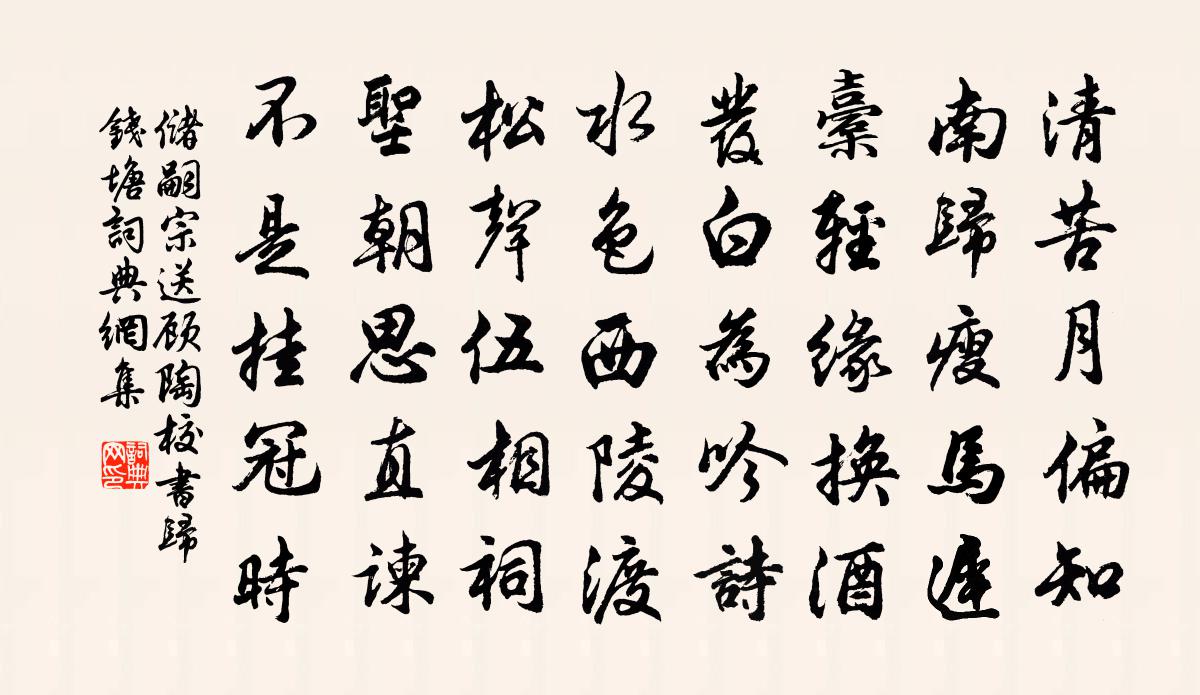 清苦月偏知
南歸瘦馬遲
橐輕緣換酒
發白為吟詩
水色西陵渡
松聲伍相祠
聖朝思直諫
不是挂冠時
儲嗣宗送顾陶校書歸
錢塘詞典網集
詞典网印